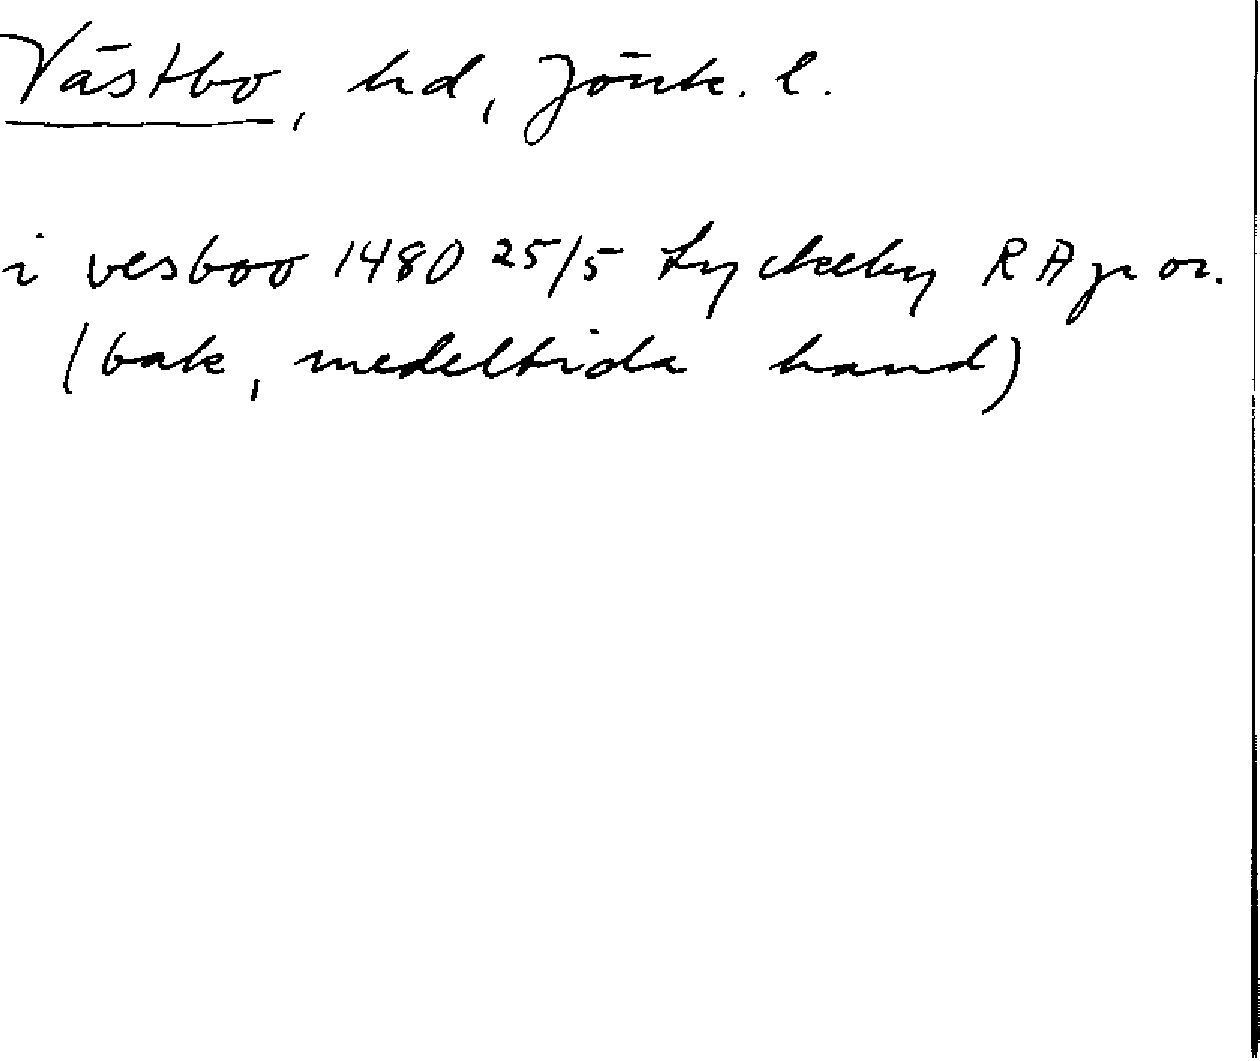 Västbo, hd, Jönk. l.
i vesboo 1480 25/5 Lyckeby RA p or.
(bak, medeltida hand)